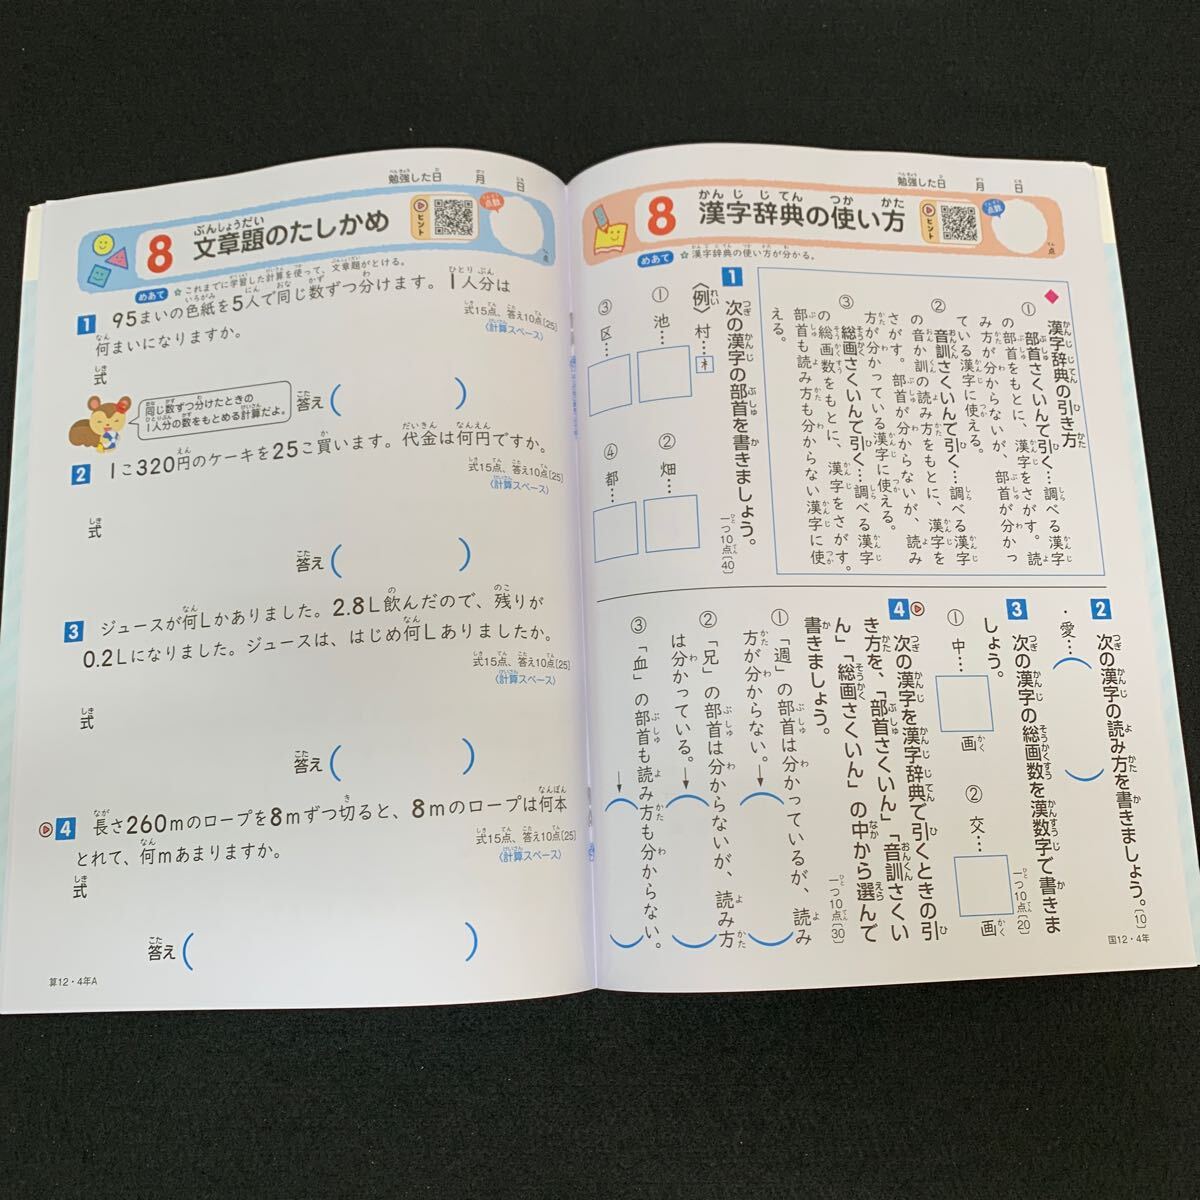 勉強した日 月 日
8 文章題のたしかめ
ヒント
点数
点
めあて ☆これまでに学習した計算を使って、文章題がとける。
1 95まいの色紙を5人で同じ数ずつ分けます。1人分は
何まいになりますか。
式15点、答え10点[25]
〈計算スペース〉
式
同じ数ずつ分けたときの
1人分の数をもとめる計算だよ。
答え( )
2 1こ320円のケーキを25こ買います。代金は何円ですか。
式15点、答え10点[25]
〈計算スペース〉
式
答え( )
3 ジュースが何Lかありました。2.8L飲んだので、残りが
0.2Lになりました。ジュースは、はじめ何Lありましたか。
式15点、答え10点[25]
〈計算スペース〉
式
答え( )
4 長さ260mのロープを8mずつ切ると、8mのロープは何本
とれて、何mあまりますか。
式15点、答え10点[25]
〈計算スペース〉
式
答え( )
算12・4年A
勉強した日 月 日
8 漢字辞典の使い方
ヒント
点数
点
めあて ☆漢字辞典の使い方が分かる。
◆ 漢字辞典の引き方
① 部首さくいんで引く…調べる漢字
の部首をもとに、漢字をさがす。読
み方が分からないが、部首が分かっ
ている漢字に使える。
② 音訓さくいんで引く…調べる漢字
の音か訓の読み方をもとに、漢字を
さがす。部首が分からないが、読み
方が分かっている漢字に使える。
③ 総画さくいんで引く…調べる漢字
の総画数をもとに、漢字をさがす。
部首も読み方も分からない漢字に使
える。
1 次の漢字の部首を書きましょう。
一つ10点[40]
〈例〉村…木
① 池…
② 畑…
③ 区…
④ 都…
2 次の漢字の読み方を書きましょう。[10]
・愛…( )
3 次の漢字の総画数を漢数字で書きま
しょう。
一つ10点[20]
① 中… 画
② 交… 画
4 次の漢字を漢字辞典で引くときの引
き方を、「部首さくいん」「音訓さくい
ん」「総画さくいん」の中から選んで
書きましょう。
一つ10点[30]
① 「週」の部首は分かっているが、読み
方が分からない。→( )
② 「兄」の部首は分からないが、読み方
は分かっている。→( )
③ 「血」の部首も読み方も分からない。
→( )
国12・4年